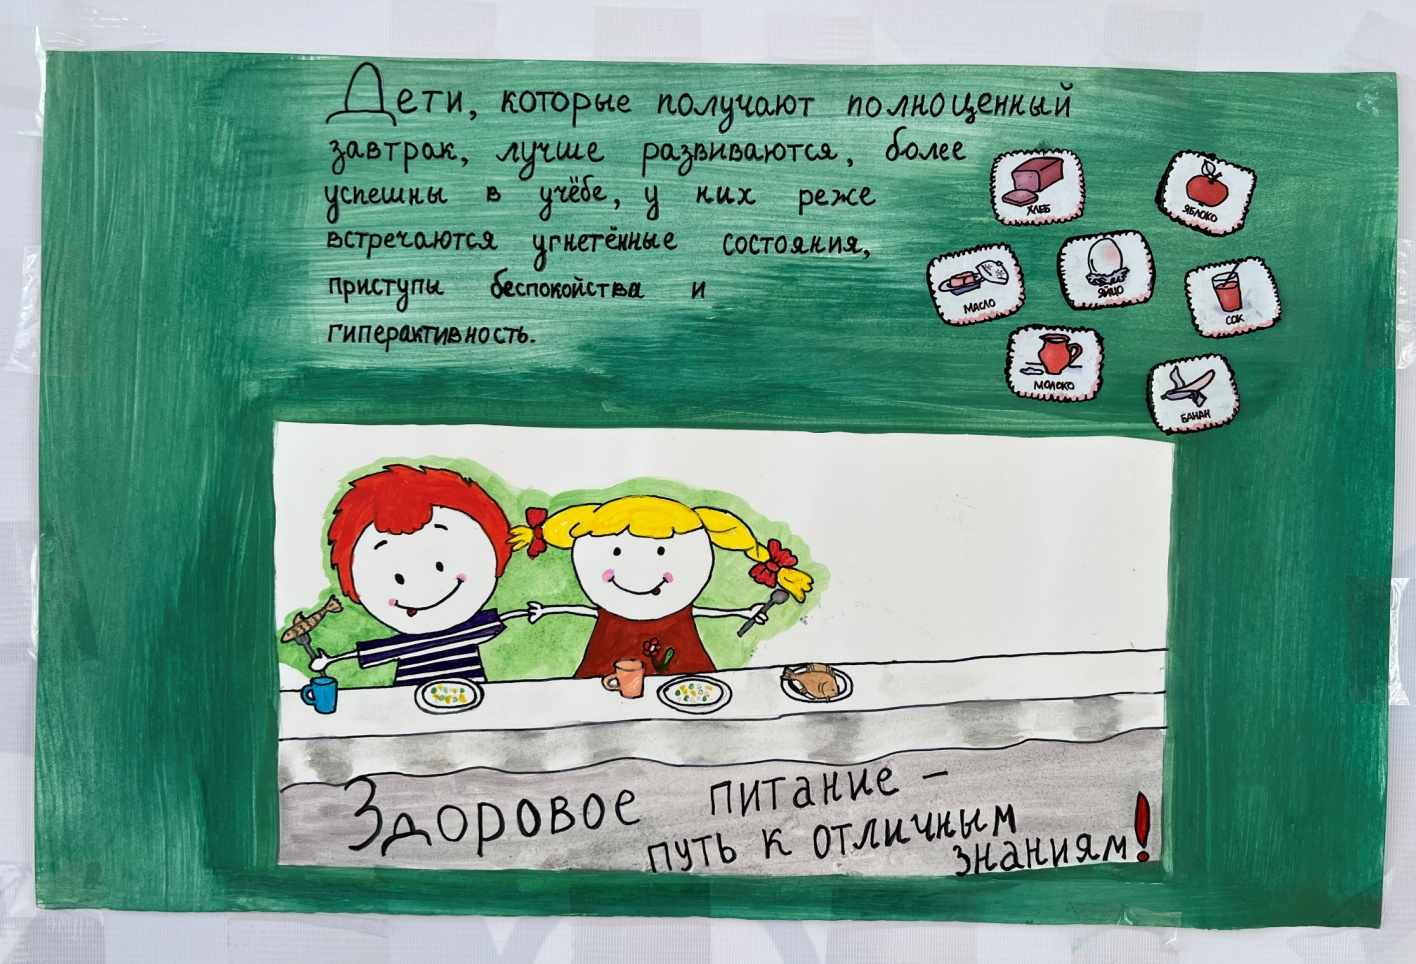 Дети, которые получают полноценный
завтрак, лучше развиваются, более
успешны в учёбе, у них реже
встречаются угнетённые состояния,
приступы беспокойства и
гиперактивность.
ХЛЕБ
ЯБЛОКО
МАСЛО
ЯЙЦО
СОК
МОЛОКО
БАНАН
Здоровое питание –
путь к отличным
знаниям!